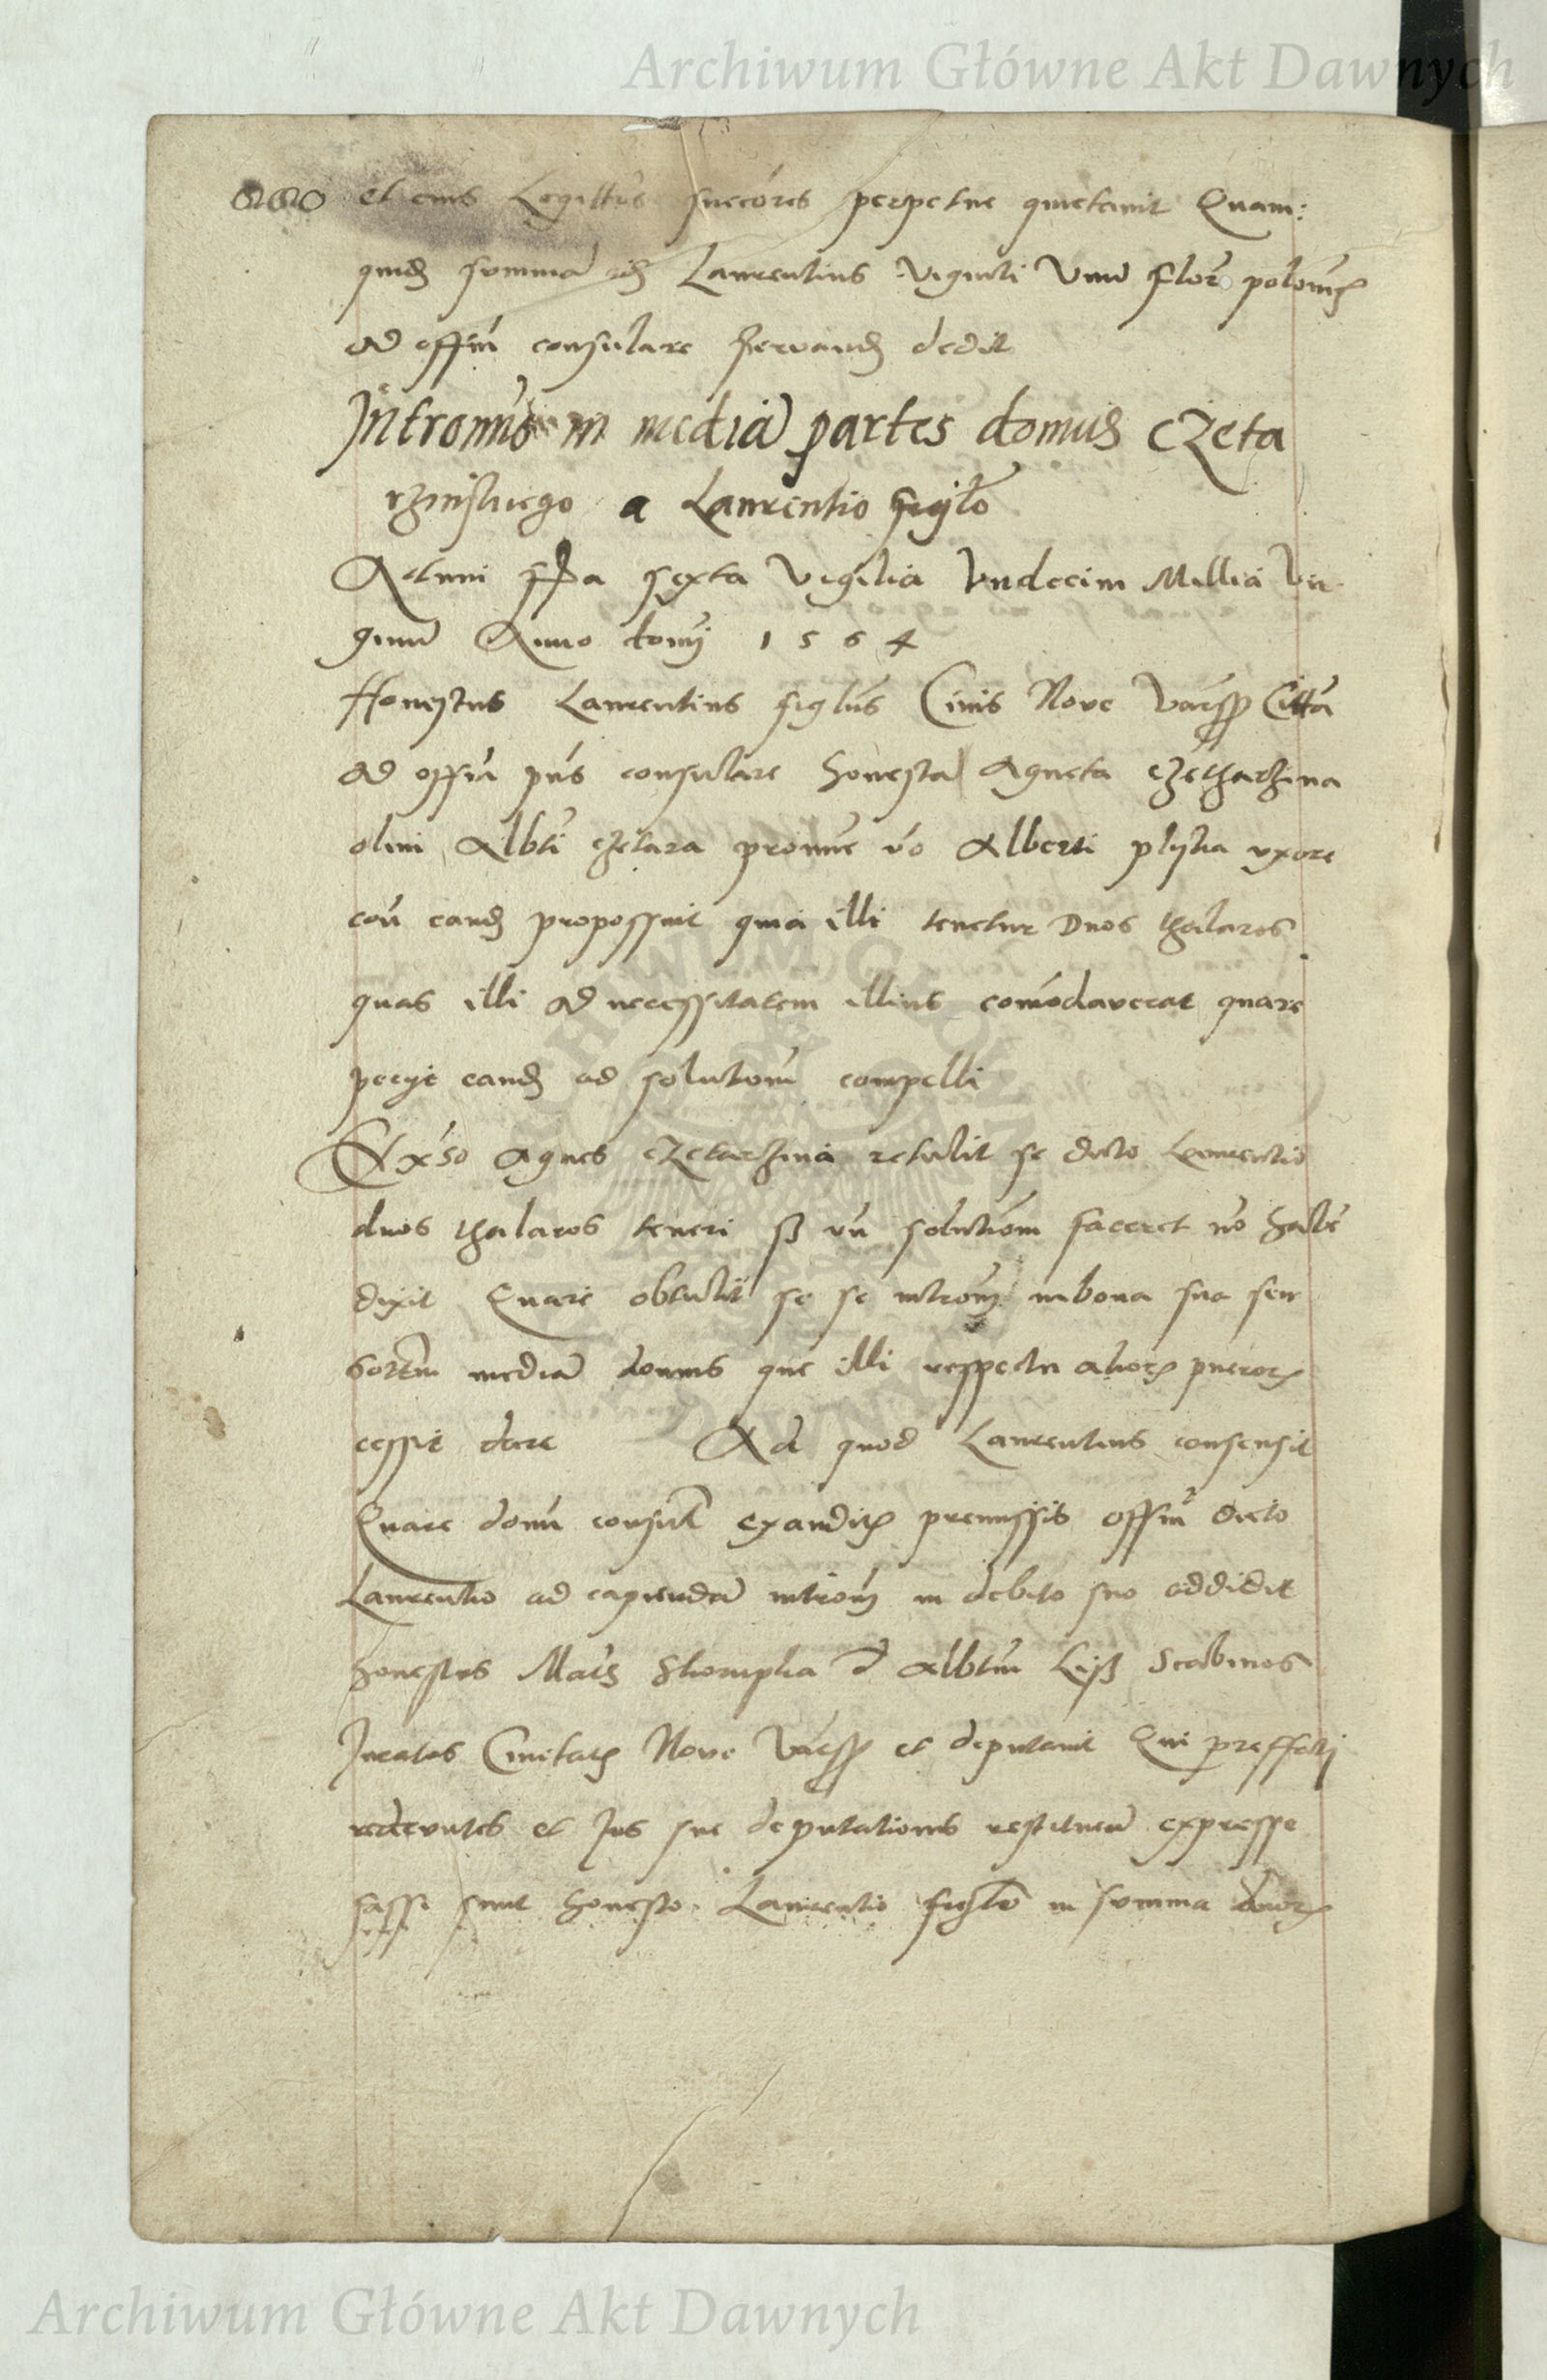 Archiwum Główne Akt Dawnych
et eius Legittīs succōres perpetue quietavit Quam:
quidē sum̄ā Laurentius Viginti Unū flor polonī
ad offīū consulare servandū dedit
Intromīs in mediā partes domus cZeta
rzinskiego a Laurentio figlō
Actum f̄ia sexta Vigilia Undecim Millia Vir
ginū Anno domī 1564
Honestus Laurentius figlūs Civis Nove Varsȩ Cittā
ad offīū pn̄s consulare honesta Agneta cZetharzina
olim Albtī cZetara pronūc vō Alberti plista uxore
corā eandē propossuit quia illi tenetur Duos thalaros
quas illi ad necessitatem illius com̄odaverat quare
pecyt eandē ad solutionē compelli
Ex adv̄so Agnes cZetarzina retulit se dicto Laurentio
duos thalaros teneri sȝ un̄ solutiōm faceret nō habē
dixit Quare obtulit se se introm̄ in bona sua seu
sortēm mediā domus que illi respectu alioꝝ pueroꝝ
cessit dare Ad quod Laurentius consensit
Quare donū consul exauditꝭ premissis offīū dicto
Laurentio ad capiendā introm̄ in debito suo addidit
honestos Matȝ et Albtūm Liss Scabinos
Juratos Civitatꝭ Nove Varsȩ et deputavit Qui prefecti
redeuntes et Jus sue deputationis restituen̄ expresse
fassi sunt honesto Laurentio figlō in summa duoꝝ
Archiwum Główne Akt Dawnych